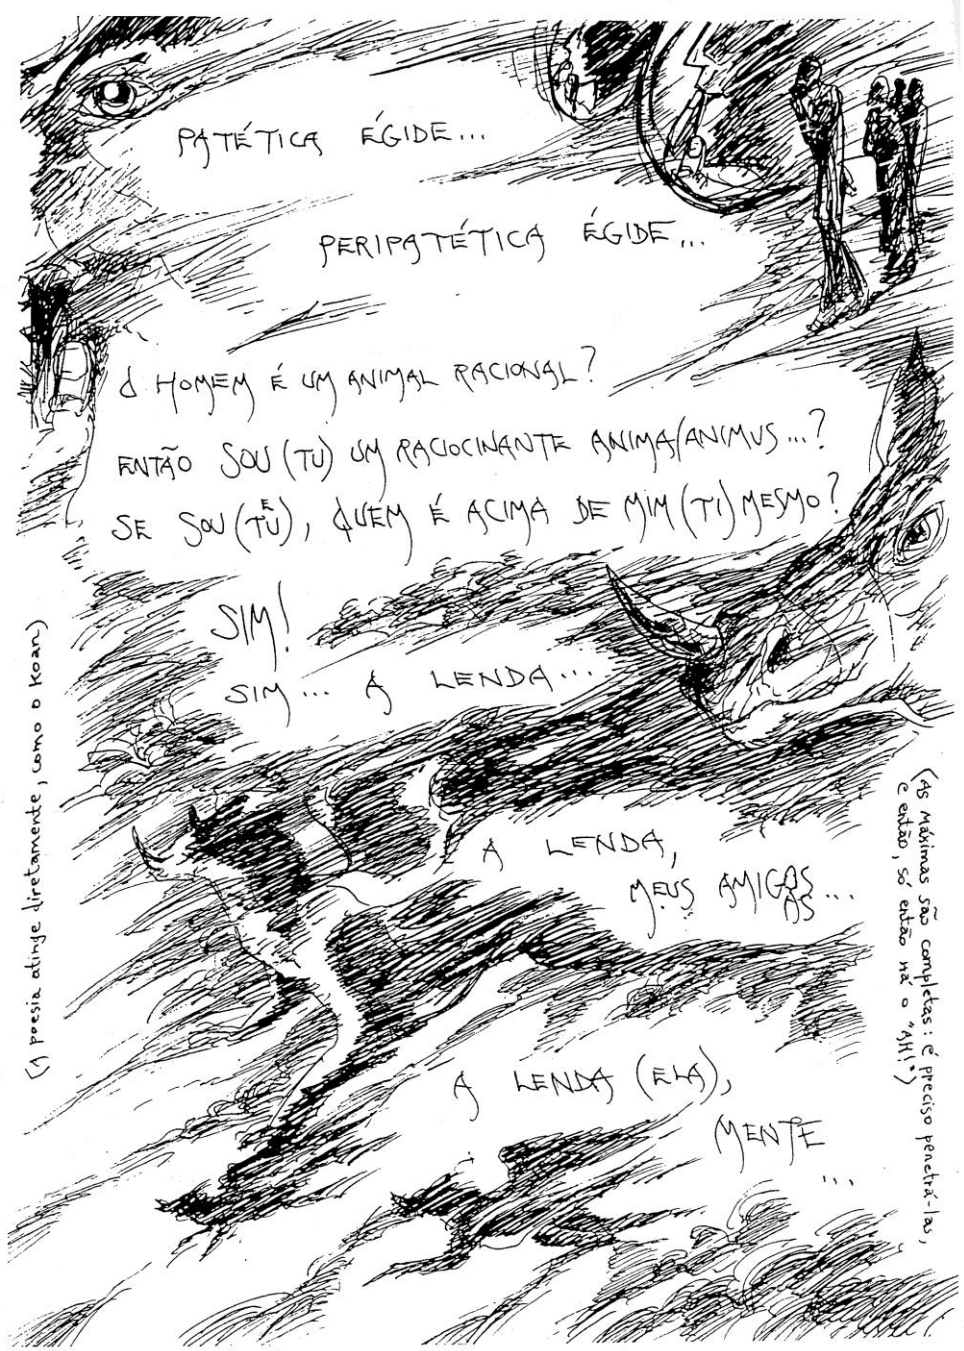 PATÉTICA ÉGIDE...
PERIPATÉTICA ÉGIDE...
O HOMEM É UM ANIMAL RACIONAL?
ENTÃO SOU (TU) UM RACIOCINANTE ANIMA/ANIMUS...?
SE SOU (TU E), QUEM É ACIMA DE MIM (TI) MESMO?
SIM!
SIM... A LENDA...
A LENDA,
MEUS AMIGOS
AS...
A LENDA (ELA),
MENTE
...
(A poesia atinge diretamente, como o koan)
(As máximas são completas: é preciso penetrá-las,
e então, só então há o "AH!")